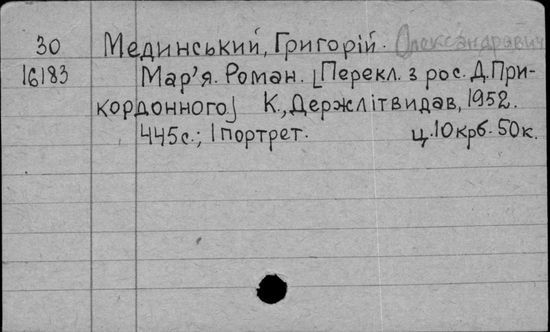 30 Мединський, Григорій. Олександрович
16183 Мар'я. Роман. [Перекл. з рос. Д. При-
кордонного] К., Держлітвидав, 1952.
445с.; 1 портрет. ц. 10 крб. 50к.